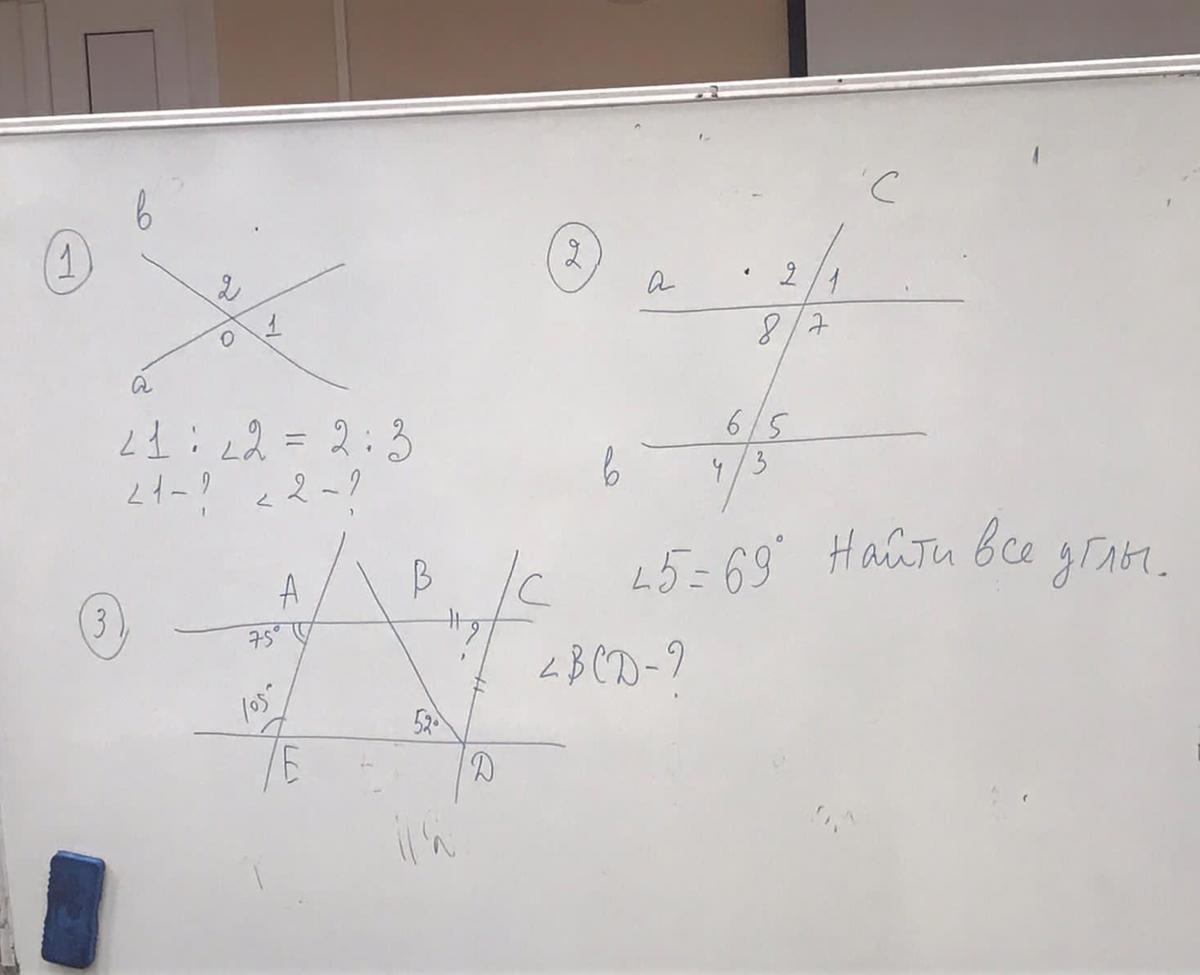 1
в
2
1
0
а
∠1 : ∠2 = 2 : 3
∠1 - ? ∠2 - ?
2
С
а
2 1
8 7
6 5
в
4 3
∠5 = 69° Найти все углы.
3
A B C
75° ?
105°
52°
E D
∠BCD - ?